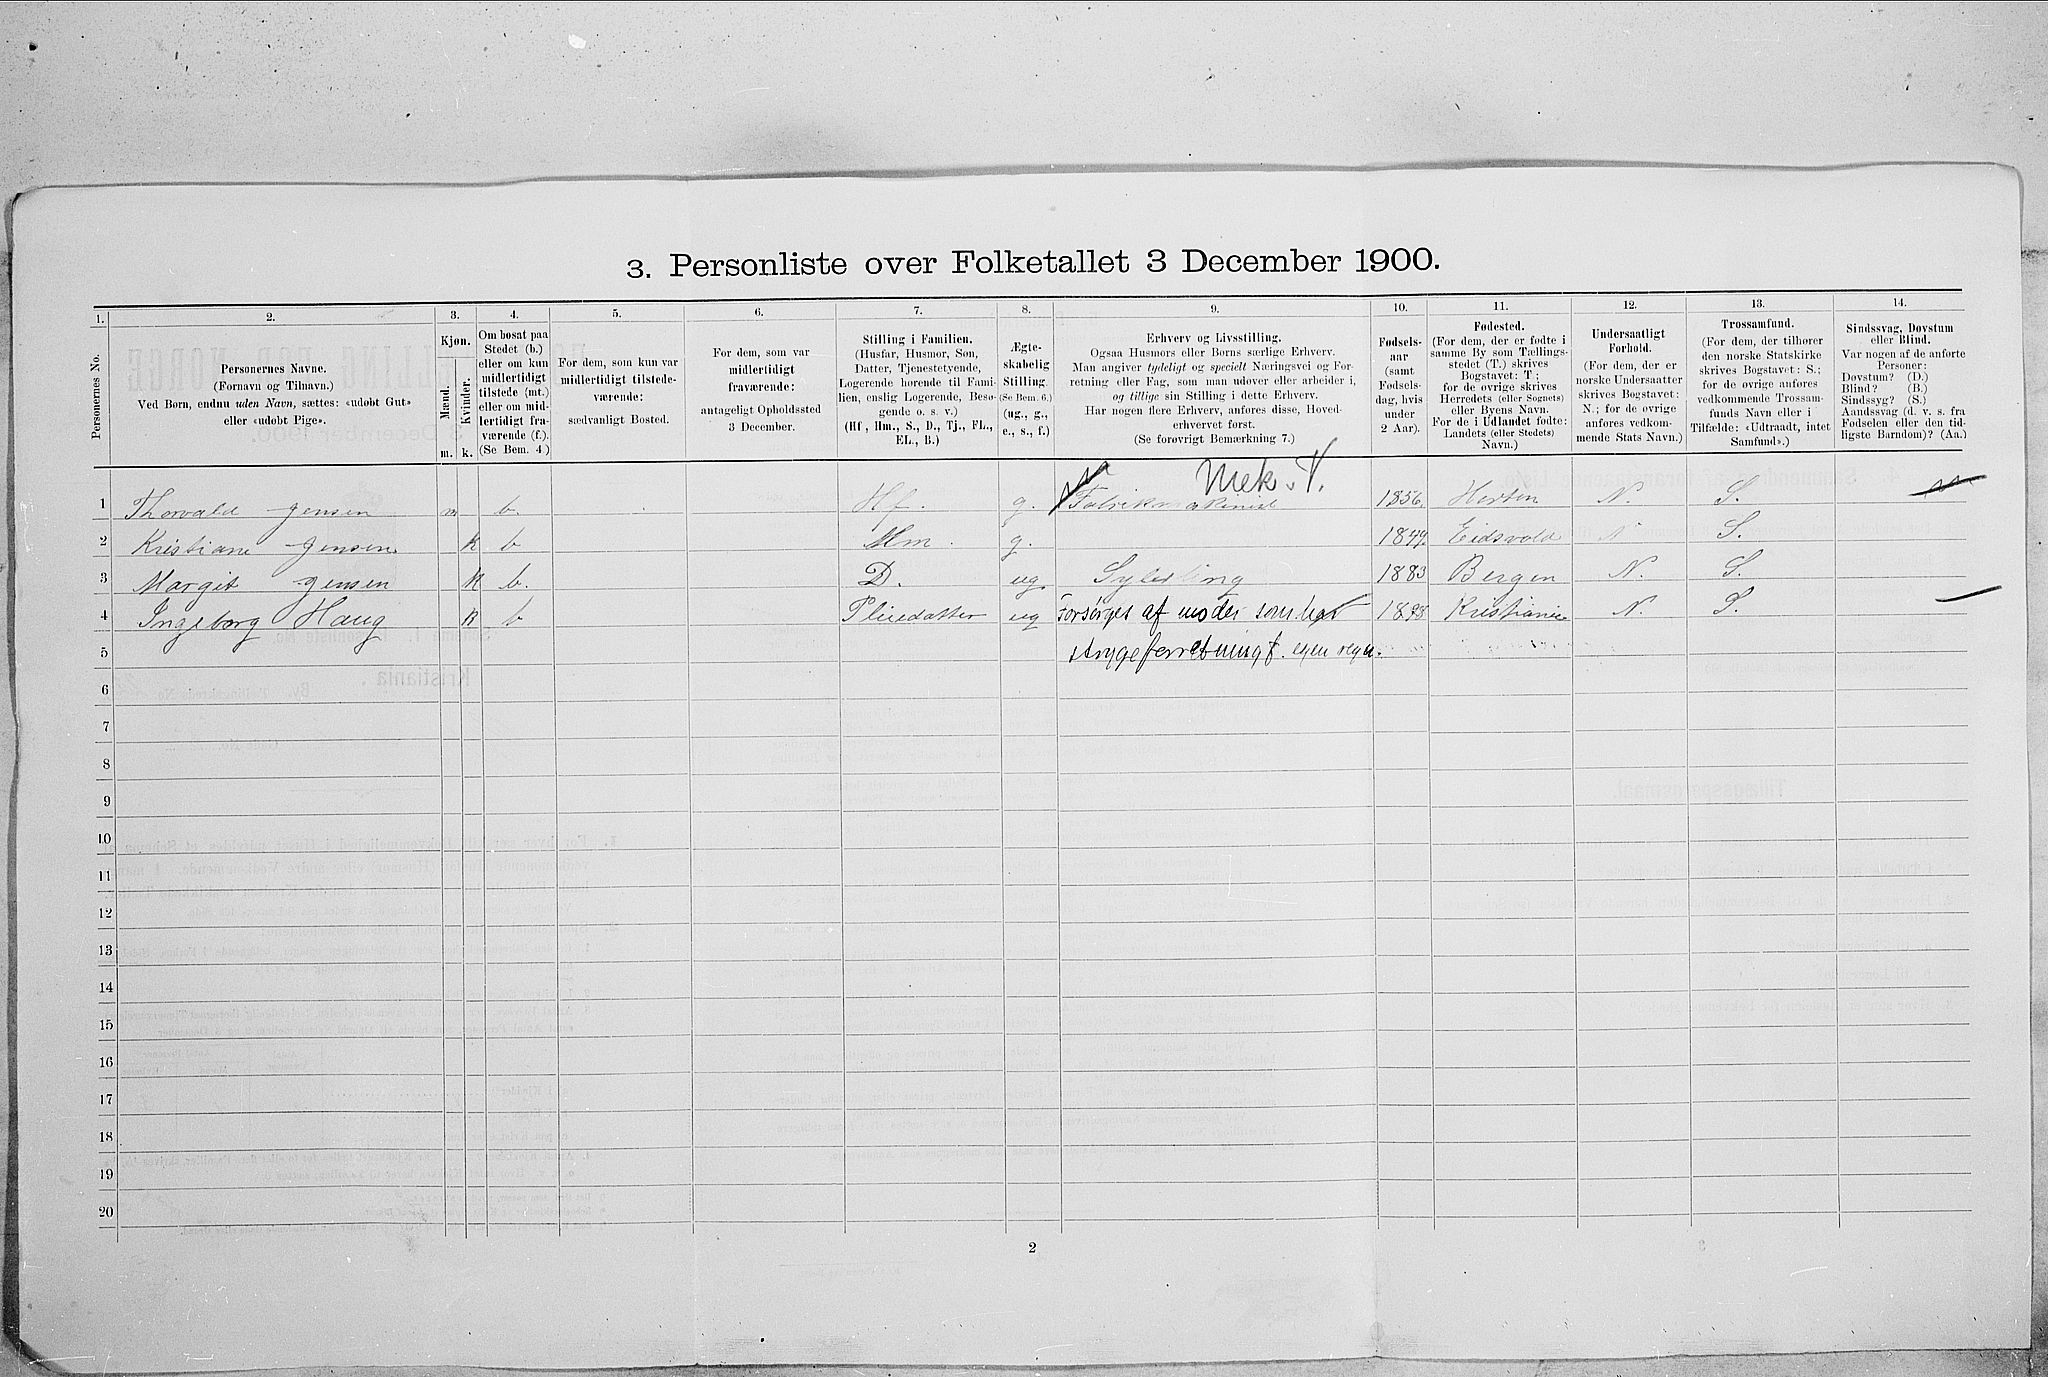 3. Personliste over Folketallet 3 December 1900.
1. 2. 3. 4. 5. 6. 7. 8. 9. 10. 11. 12. 13. 14.
Personernes No.
Personernes Navne.
(Fornavn og Tilnavn.)
Ved Børn, endnu uden Navn, sættes: «udøbt Gut»
eller «udøbt Pige».
Kjøn.
Mænd. Kvinder.
m. k.
Om bosat paa
Stedet (b.)
eller om kun
midlertidigt
tilstede (mt.)
eller om mid-
lertidigt fra-
værende (f.).
(Se Bem. 4.)
For dem, som kun var
midlertidigt tilstede-
værende:
sædvanligt Bosted.
For dem, som var
midlertidigt
fraværende:
antageligt Opholdssted
3 December.
Stilling i Familien.
(Husfar, Husmor, Søn,
Datter, Tjenestetyende,
Logerende hørende til Fami-
lien, enslig Logerende, Besø-
gende o. s. v.)
(Hf., Hm., S., D., Tj., FL.,
EL., B.)
Ægte-
skabelig
Stilling.
(Se Bem. 6.)
(ug., g.,
e., s., f.)
Erhverv og Livsstilling.
Ogsaa Husmors eller Børns særlige Erhverv.
Man angiver tydeligt og specielt Næringsvei og For-
retning eller Fag, som man udøver eller arbeider i,
og tillige sin Stilling i dette Erhverv.
Har nogen flere Erhverv, anføres disse, Hoved-
erhvervet først.
(Se forøvrigt Bemærkning 7.)
Fødsels-
aar
(samt
Fødsels-
dag, hvis
under
2 Aar).
Fødested.
(For dem, der er fødte i
samme By som Tællings-
stedet (T.) skrives
Bogstavet: T;
for de øvrige skrives
Herredets (eller Sognets)
eller Byens Navn.
For de i Udlandet fødte:
Landets (eller Stedets)
Navn.)
Undersaatligt
Forhold.
(For dem, der er
norske Undersaatter
skrives Bogstavet:
N.; for de øvrige
anføres vedkom-
mende Stats Navn.)
Trossamfund.
(For dem, der tilhører
den norske Statskirke
skrives Bogstavet: S.;
for de øvrige anføres
vedkommende Trossam-
funds Navn eller i
Tilfælde: «Udtraadt, intet
Samfund».)
Sindssvag, Døvstum
eller Blind.
Var nogen af de anførte
Personer:
Døvstum? (D.)
Blind? (B.)
Sindssyg? (S.)
Aandssvag (d. v. s. fra
Fødselen eller den tid-
ligste Barndom)? (Aa.)
Mek. V.
1 Thorvald Jensen m b. Hf. g. Fabrikmaskinist 1856. Horten N. S.
2 Kristiane Jensen k b Hm. g. 1849. Eidsvold N S.
3 Margit Jensen k b. D. ug Syledling 1883 Bergen N. S.
4 Ingeborg Haug k b Pleiedatter ug Forsørges af moder som har 1898 Kristiania N. S.
5 strygeforretning f. egen regn.
6
7
8
9
10
11
12
13
14
15
16
17
18
19
20
2